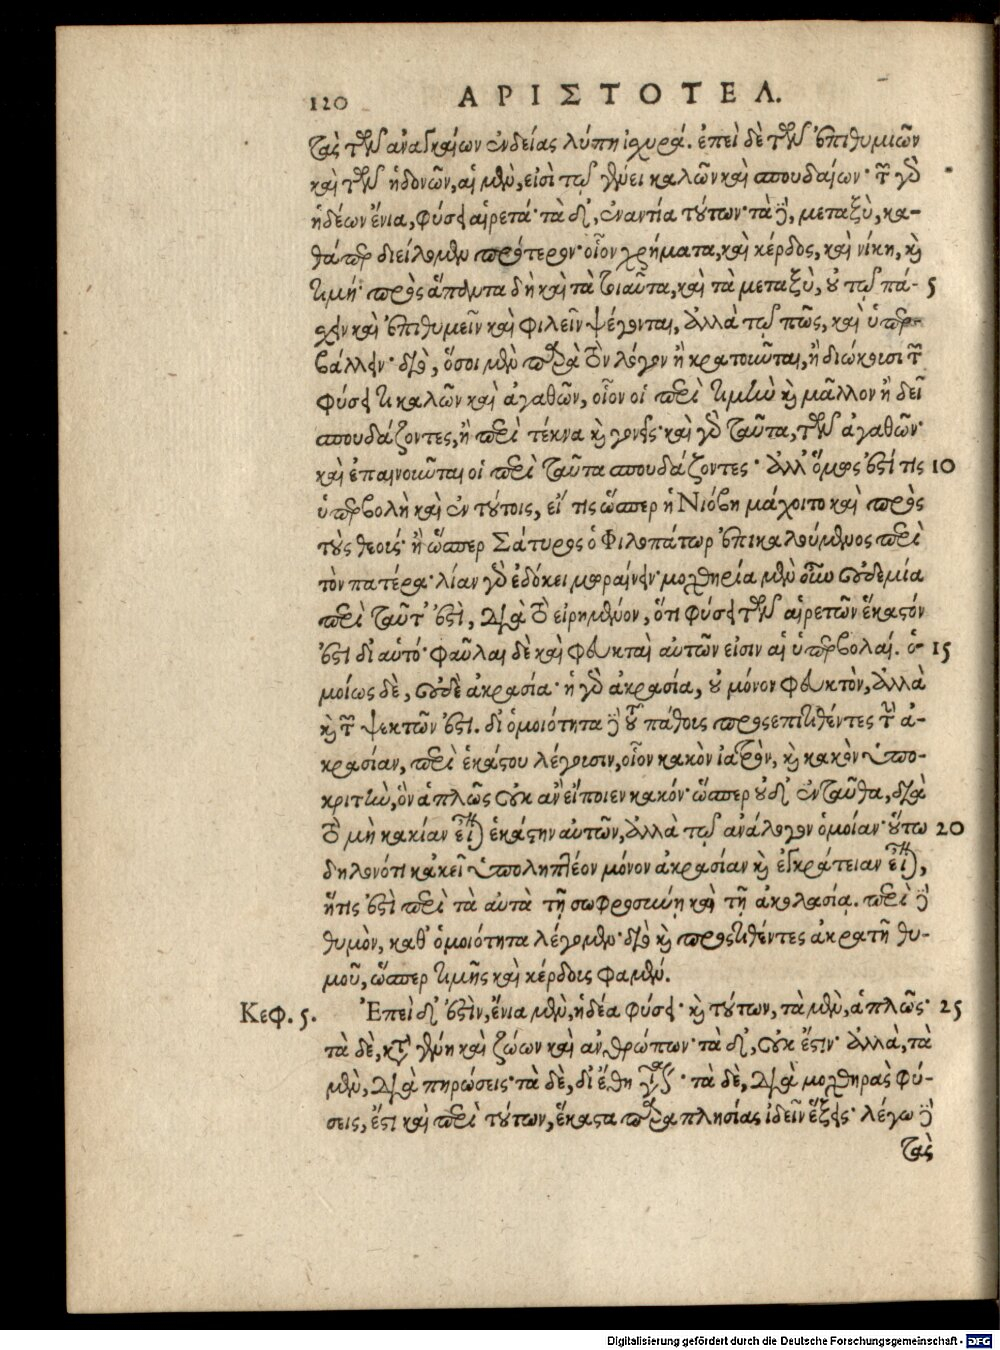 120 ΑΡΙΣΤΟΤΕΛ.
τὰς τῶν ἀναγκαίων ἐνδείας λύπη ἰσχυρά. ἐπεὶ δὲ τῶν ἐπιθυμιῶν
καὶ τῶν ἡδονῶν, αἱ μὲν, εἰσὶ τῷ γένει καλῶν καὶ σπουδαίων· τῶν γὰρ
ἡδέων ἔνια, φύσει αἱρετά· τὰ δ', ἐναντία τούτων· τὰ δὲ, μεταξὺ, κα-
θάπερ διείλομεν πρότερον· οἷον χρήματα, καὶ κέρδος, καὶ νίκη, καὶ
τιμή· πρὸς ἅπαντα δὴ καὶ τὰ τοιαῦτα, καὶ τὰ μεταξὺ, οὐ τῷ πά- 5
σχειν καὶ ἐπιθυμεῖν καὶ φιλεῖν ψέγονται, ἀλλὰ τῷ πῶς, καὶ ὑπερ-
βάλλειν· διὸ, ὅσοι μὲν παρὰ τὸν λόγον ἢ κρατοῦνται, ἢ διώκουσι τῶν
φύσει τι καλῶν καὶ ἀγαθῶν, οἷον οἱ περὶ τιμὴν καὶ μᾶλλον ἢ δεῖ
σπουδάζοντες, ἢ περὶ τέκνα καὶ γονεῖς· καὶ γὰρ ταῦτα, τῶν ἀγαθῶν·
καὶ ἐπαινοῦνται οἱ περὶ ταῦτα σπουδάζοντες· ἀλλ' ὅμως ἐστί τις 10
ὑπερβολὴ καὶ ἐν τούτοις, εἴ τις ὥσπερ ἡ Νιόβη μάχοιτο καὶ πρὸς
τοὺς θεούς· ἢ ὥσπερ Σάτυρος ὁ Φιλοπάτωρ ἐπικαλούμενος περὶ
τὸν πατέρα· λίαν γὰρ ἐδόκει μωραίνειν· μοχθηρία μὲν οὖν οὐδεμία
περὶ ταῦτ' ἐστὶ, διὰ τὸ εἰρημένον, ὅτι φύσει τῶν αἱρετῶν ἕκαστόν
ἐστι δι' αὑτό· φαῦλαι δὲ καὶ φευκταὶ αὐτῶν εἰσιν αἱ ὑπερβολαί. ὁ- 15
μοίως δὲ, οὐδὲ ἀκρασία· ἡ γὰρ ἀκρασία, οὐ μόνον φευκτὸν, ἀλλὰ
καὶ τῶν ψεκτῶν ἐστι. δι' ὁμοιότητα δὲ τοῦ πάθους προσεπιτιθέντες τὴν ἀ-
κρασίαν, περὶ ἑκάστου λέγουσιν, οἷον κακὸν ἰατρὸν, καὶ κακὸν ὑπο-
κριτὴν, ὃν ἁπλῶς οὐκ ἂν εἴποιεν κακόν· ὥσπερ οὐδ' ἐνταῦθα, διὰ
τὸ μὴ κακίαν εἶναι ἑκάστην αὐτῶν, ἀλλὰ τῷ ἀνάλογον ὁμοίαν· οὕτω 20
δηλονότι κἀκεῖ ὑποληπτέον μόνον ἀκρασίαν καὶ ἐγκράτειαν εἶναι,
ἥτις ἐστὶ περὶ τὰ αὐτὰ τῇ σωφροσύνῃ καὶ τῇ ἀκολασίᾳ. περὶ δὲ
θυμὸν, καθ' ὁμοιότητα λέγομεν· διὸ καὶ προστιθέντες ἀκρατῆ θυ-
μοῦ, ὥσπερ τιμῆς καὶ κέρδους φαμέν.
Κεφ. 5. Ἐπεὶ δ' ἐστὶν, ἔνια μὲν, ἡδέα φύσει· καὶ τούτων, τὰ μὲν, ἁπλῶς· 25
τὰ δὲ, κατὰ γένη καὶ ζώων καὶ ἀνθρώπων· τὰ δ', οὐκ ἔστιν· ἀλλὰ, τὰ
μὲν, διὰ πηρώσεις· τὰ δὲ, δι' ἔθη γίνεται· τὰ δὲ, διὰ μοχθηρὰς φύ-
σεις, ἔστι καὶ περὶ τούτων, ἕκαστα παραπλησίας ἰδεῖν ἕξεις· λέγω δὲ
τὰς
Digitalisierung gefördert durch die Deutsche Forschungsgemeinschaft - DFG